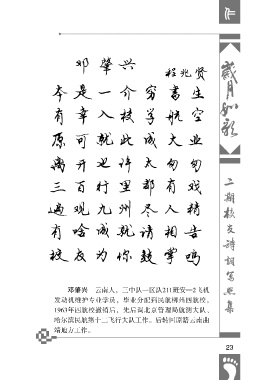 邓肇兴
程兆贤
本是一介穷书生
有幸入校学航空
原可就此成大业
离开也许太匆匆
三百行里都有戏
遍观九州尽人精
有啥成就请相告
校友为你鼓掌鸣
邓肇兴 云南人，三中队一区队211班安—2飞机
发动机维护专业学员，毕业分配到民航柳州四航校。
1963年四航校撤销后，先后调北京管理局航测大队、
哈尔滨民航第十二飞行大队工作。后转回原籍云南曲
靖地方工作。
岁月如歌
二期校友诗词写照集
23